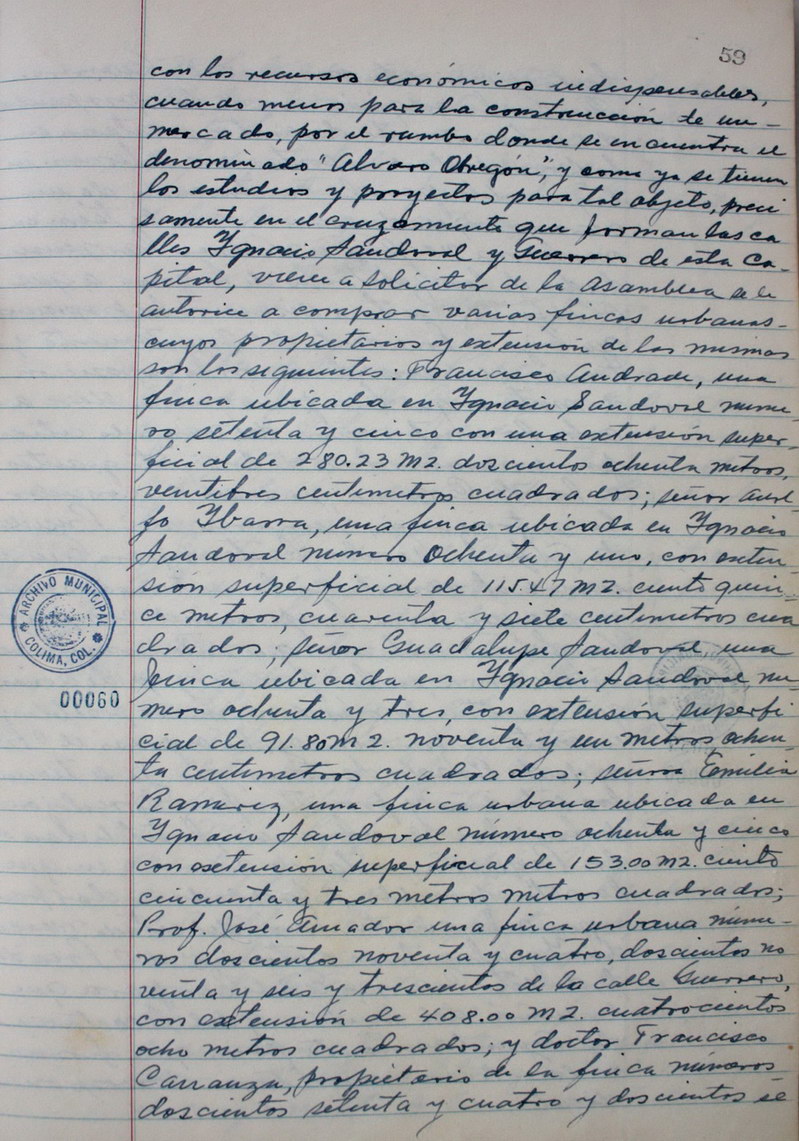 59
con los recursos económicos indispensables,
cuando menos para la construcción de un
mercado, por el rumbo donde se encuentra el
denominado "Alvaro Obregón", y como ya se tienen
los estudios y proyectos para tal objeto, preci
samente en el cruzamiento que forman las ca
lles Ygnacio Sandoval y Guerrero de esta Ca-
pital, viene a solicitar de la Asamblea se le
autorice a comprar varias fincas urbanas-
cuyos propietarios y extensión de las mismas
son los siguientes: Francisco Andrade, una
finca ubicada en Ygnacio Sandoval núme-
ro setenta y cinco con una extensión super-
ficial de 280.23 M2. doscientos ochenta metros,
ventitres centimetros cuadrados; señor
Ybarra, una finca ubicada en Ygnacio
Sandoval número ochenta y uno, con exten-
sión superficial de 115.47 M2. ciento quin-
ce metros, cuarenta y siete centimetros cua
drados; señor Guadalupe Sandoval, una
finca ubicada en Ygnacio Sandoval nu-
mero ochenta y tres, con extensión superfi
cial de 91.80 M2. noventa y un metros, ochen-
ta centimetros cuadrados; señora Emilia
Ramirez, una finca urbana ubicada en
Ygnacio Sandoval número ochenta y cinco
con extensión superficial de 153.00 M2. ciento
cincuenta y tres metros metros cuadrados;
Prof. José Amador una finca urbana núme-
ros doscientos noventa y cuatro, doscientos no
venta y seis y trescientos de la calle Guerrero,
con extensión de 408.00 M2. cuatrocientos
ocho metros cuadrados; y doctor Francisco
Carranza, propietario de la finca números
doscientos setenta y cuatro y doscientos se
ARCHIVO MUNICIPAL
COLIMA, COL.
00060